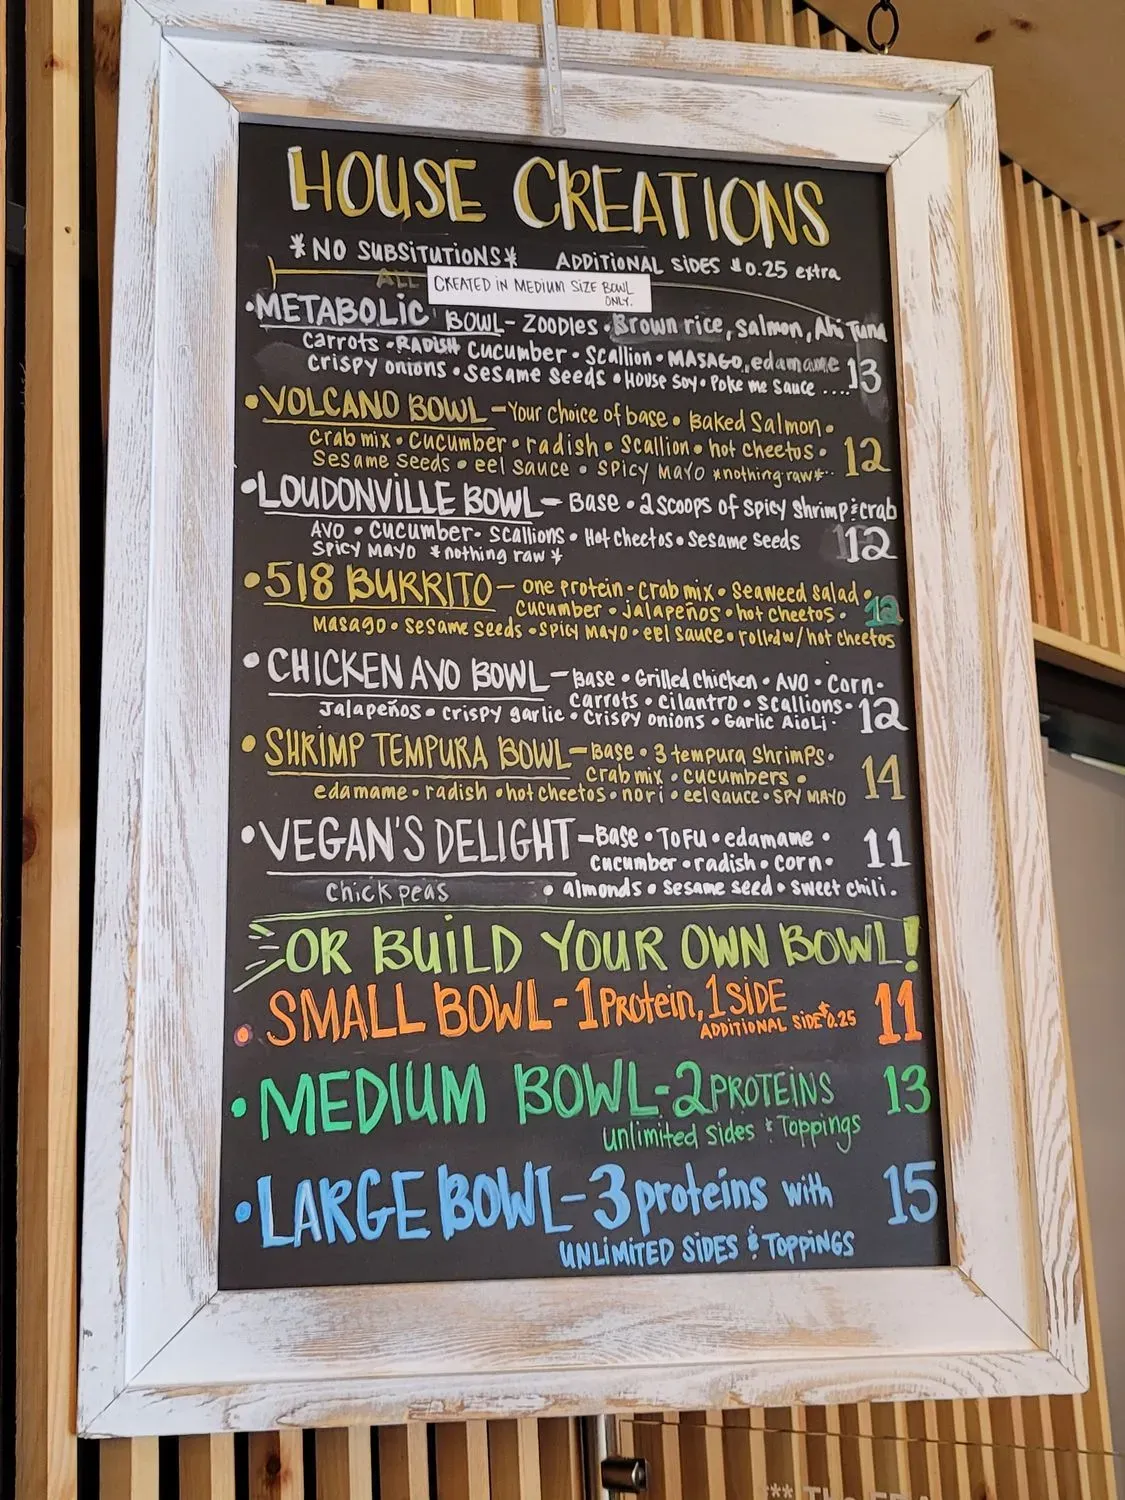 HOUSE CREATIONS
*NO SUBSITUTIONS* ADDITIONAL SIDES $0.25 extra
ALL CREATED IN MEDIUM SIZE BOWL
ONLY.
•METABOLIC BOWL- ZOODLES • Brown rice, salmon, Ahi Tuna
carrots • RADISH cucumber • scallion • MASAGO, edamame
crispy onions • sesame seeds • HOUSE SOY • Poke me sauce .... 13
•VOLCANO BOWL - Your choice of base • Baked Salmon •
crab mix • cucumber • radish • scallion • hot cheetos •
sesame seeds • eel sauce • SPICY MAYO *nothing raw* 12
•LOUDONVILLE BOWL - Base • 2 scoops of spicy shrimp & crab
AVO • cucumber - scallions • Hot cheetos • sesame seeds 12
SPICY MAYO *nothing raw*
•518 BURRITO - one protein • crab mix • seaweed salad •
cucumber • jalapeños • hot cheetos • 12
Masago • sesame seeds • spicy mayo • eel sauce • rolled w/ hot cheetos
•CHICKEN AVO BOWL - Base • Grilled chicken • AVO • corn •
carrots • cilantro • scallions •
jalapeños • crispy garlic • crispy onions • Garlic Aioli • 12
•SHRIMP TEMPURA BOWL - Base • 3 tempura shrimps •
crab mix • cucumbers • 14
edamame • radish • hot cheetos • nori • eel sauce • SPY MAYO
•VEGAN'S DELIGHT - Base • TOFU • edamame •
cucumber • radish • corn • 11
chick peas • almonds • sesame seed • sweet chili •
OR BUILD YOUR OWN BOWL!
•SMALL BOWL - 1 Protein, 1 SIDE 11
ADDITIONAL SIDE $0.25
•MEDIUM BOWL - 2 PROTEINS 13
unlimited sides & Toppings
•LARGE BOWL - 3 proteins with 15
UNLIMITED SIDES & TOPPINGS